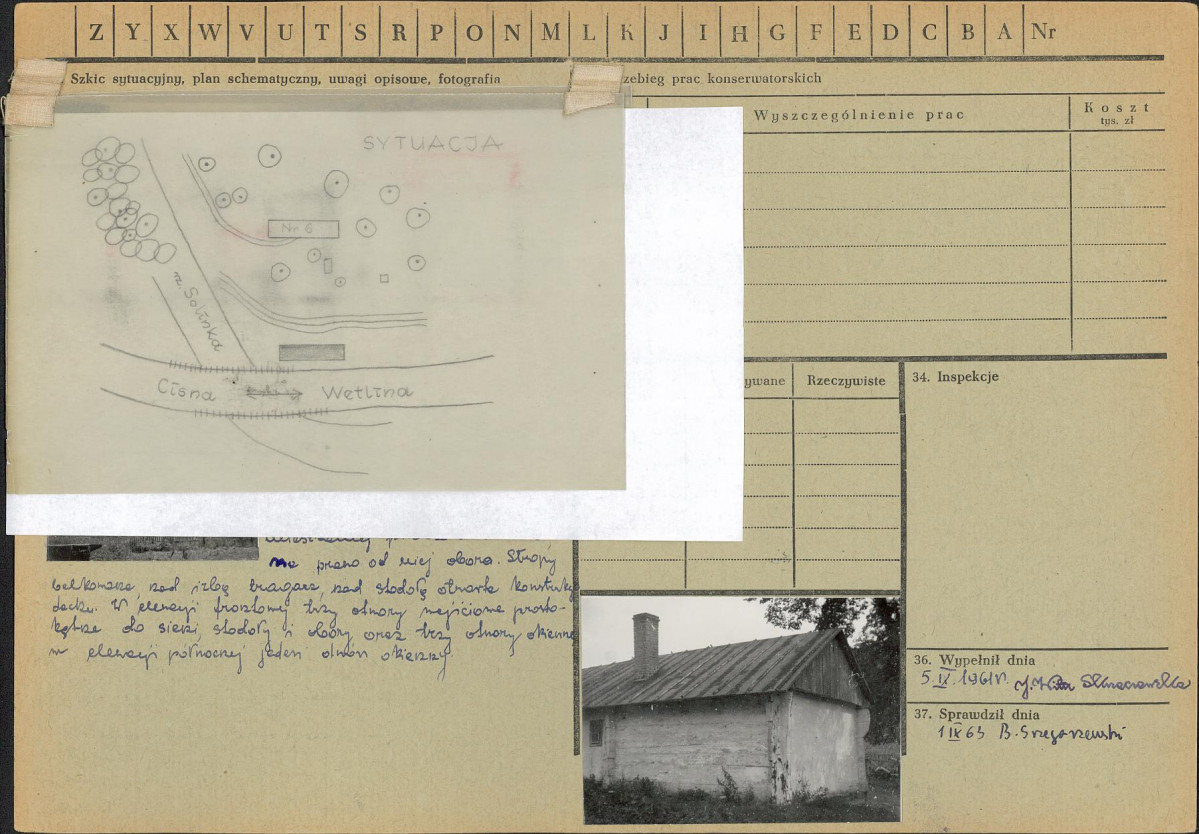 Z Y X W V U T S R P O N M L K J I H G F E D C B A Nr
Szkic sytuacyjny, plan schematyczny, uwagi opisowe, fotografia
zebieg prac konserwatorskich
Wyszczególnienie prac
Koszt
tys. zł
SYTUACJA
Nr 6
rz. Solinka
Cisna
Wetlina
ywane
Rzeczywiste
34. Inspekcje
na prawo od niej obora. Stropy
belkowane, nad izbą tragarz, nad stodołą otwarta konstruk
dachu. W elewacji frontowej trzy otwory wejściowe prosto-
kątne do sieni, stodoły i obory oraz trzy otwory okienne
w elewacji północnej jeden otwór okienny.
36. Wypełnił dnia
5.IX.1961r.
37. Sprawdził dnia
1 IX 63 B. Grzegorzewski